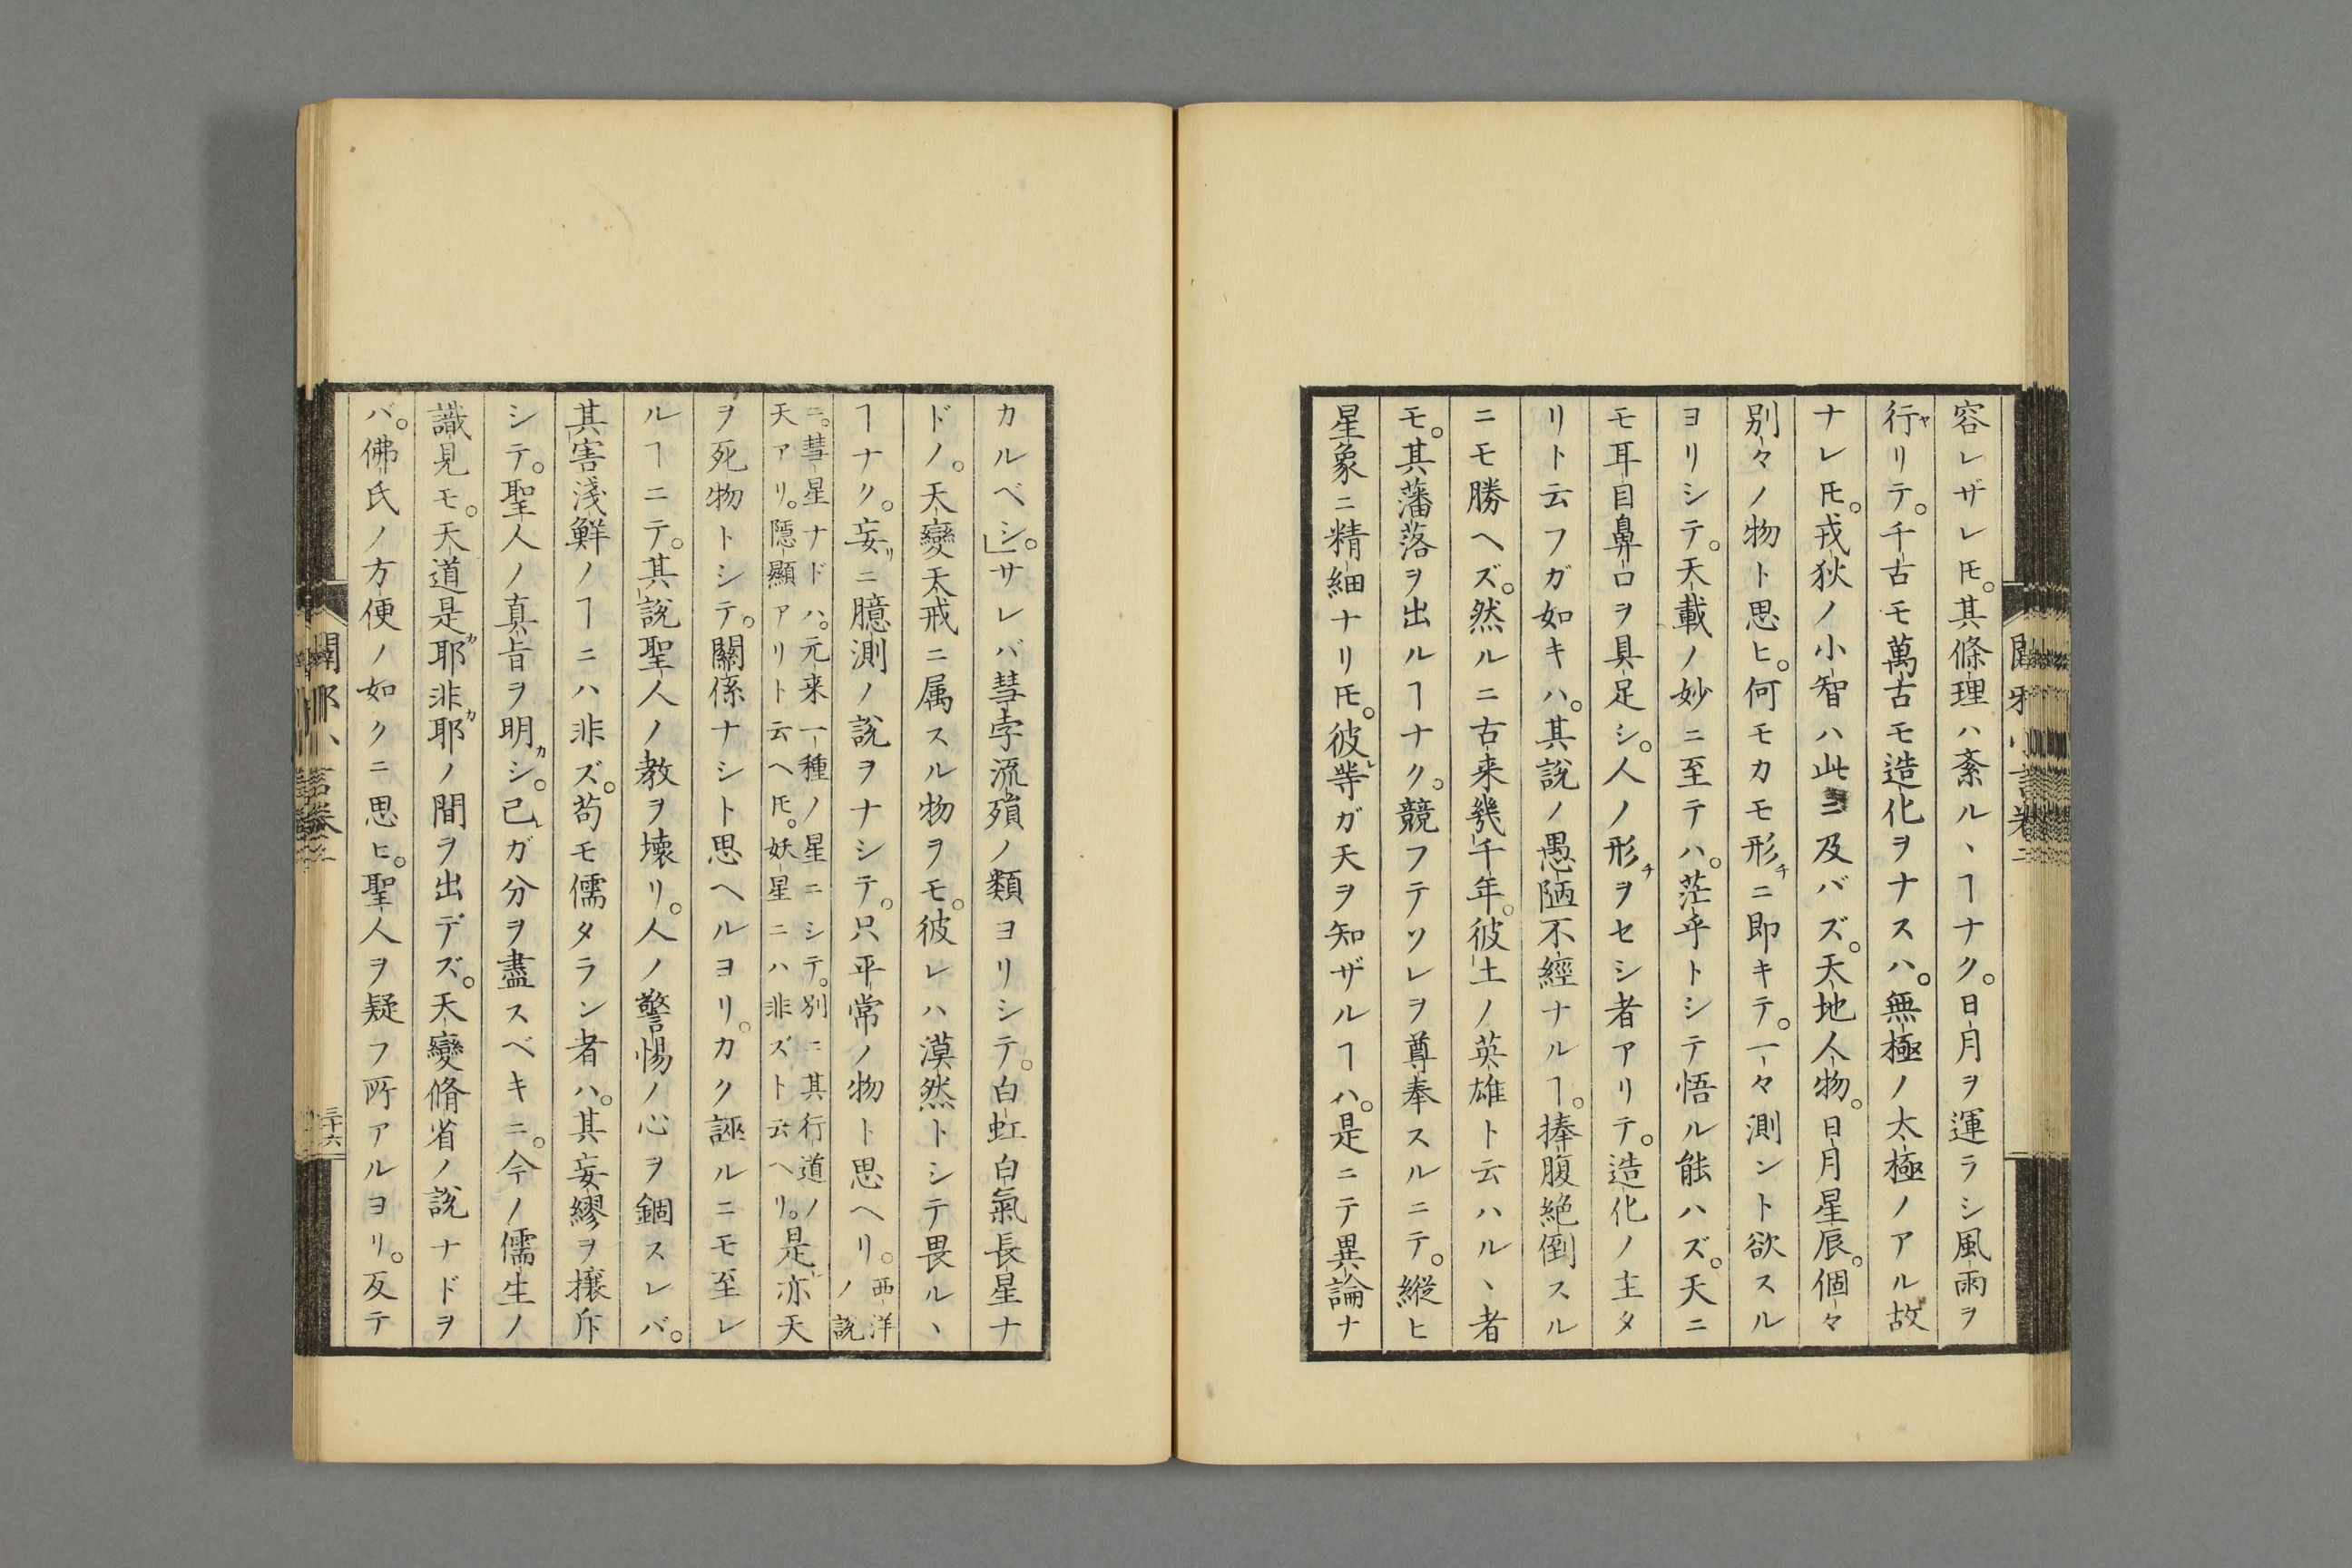 容レザレ𪜈。其條理ハ紊ル、ヿナク。日月ヲ運ラシ風雨ヲ
行ヤリテ。千古モ萬古モ造化ヲナスハ。無極ノ太極ノアル故
ナレ𪜈。戎狄ノ小智ハ此ニ及バズ。天地人物。日月星辰。個々
別々ノ物ト思ヒ。何モカモ形チニ即キテ。一々測ント欲スル
ヨリシテ。天載ノ妙ニ至テハ。茫乎トシテ悟ル能ハズ。天ニ
モ耳目鼻口ヲ具足シ。人ノ形チヲセシ者アリテ。造化ノ主タ
リト云フガ如キハ。其說ノ愚陋不經ナルヿ。捧腹絕倒スル
ニモ勝ヘズ。然ルニ古来幾千年。彼土ノ英雄ト云ハル、者
モ。其藩落ヲ出ルヿナク。競フテソレヲ尊奉スルニテ。縱ヒ
星象ニ精細ナリ𪜈。彼レ等ガ天ヲ知ザルヿハ。是ニテ異論ナ
カルベシ。」サレバ彗孛流殞ノ類ヨリシテ。白虹白氣長星ナ
ドノ。天變天戒ニ属スル物ヲモ。彼レハ漠然トシテ畏ル、
ヿナク。妄リニ臆測ノ說ヲナシテ。只平常ノ物ト思ヘリ。西洋ノ說
ニ。彗星ナドハ。元来一種ノ星ニシテ。別ニ其行道ノ
天アリ。隱顯アリト云ヘ𪜈。妖星ニハ非ズト云ヘリ。是レ亦天
ヲ死物トシテ。關係ナシト思ヘルヨリ。カク誣ルニモ至レ
ルヿニテ。其說聖人ノ教ヲ壊リ。人ノ警惕ノ心ヲ錮スレバ。
其害淺鮮ノヿニハ非ズ。苟モ儒タラン者ハ。其妄繆ヲ攘斥
シテ。聖人ノ真旨ヲ明カシ。己レガ分ヲ盡スベキニ。今ノ儒生ノ
識見モ。天道是耶カ非耶カノ間ヲ出デズ。天變脩省ノ說ナドヲ
バ。佛氏ノ方便ノ如クニ思ヒ。聖人ヲ疑フ所アルヨリ。反テ
三十六